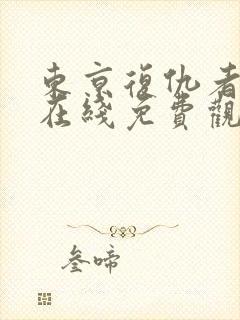 東京復仇者
在綫免費觀
叁啼